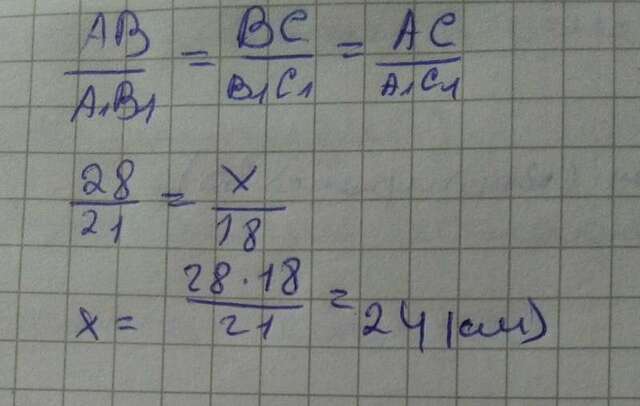 AB/A₁B₁ = BC/B₁C₁ = AC/A₁C₁
28/21 = x/18
x = 28·18/21 = 24 (см)